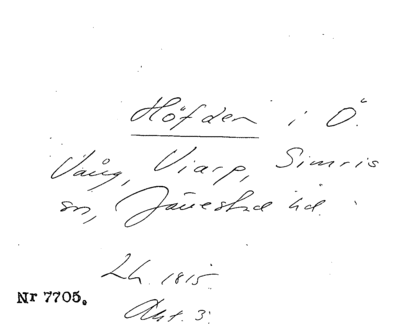 Höfden i Ö.
Vång, Viarp, Simris
sn, Järrestad hd.
Lh. 1815.
Nr 7705.
Akt. 3.